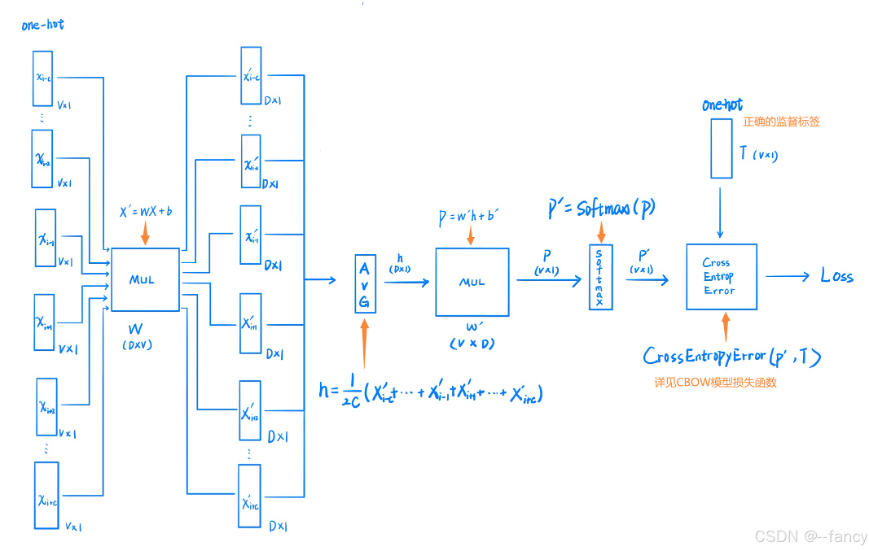 one-hot
x_{i-c}
V×1
⋮
x_{i-2}
V×1
x_{i-1}
V×1
x_{i+1}
V×1
x_{i+2}
V×1
⋮
x_{i+c}
V×1
X'=WX+b
MUL
W
(D×V)
x'_{i-c}
D×1
⋮
D×1
x'_{i-1}
D×1
x'_{i+1}
D×1
D×1
⋮
x'_{i+c}
D×1
AVG
h=\frac{1}{2C}(X'_{i-c}+…+X'_{i-1}+X'_{i+1}+…+X'_{i+c})
h
(D×1)
P=W'h+b'
MUL
W'
(V×D)
P
(V×1)
P'=Softmax(P)
Softmax
P'
(V×1)
onehot
正确的监督标签
T (V×1)
Cross
Entrop
Error
Loss
CrossEntropyError(P',T)
详见CBOW模型损失函数
CSDN @--fancy